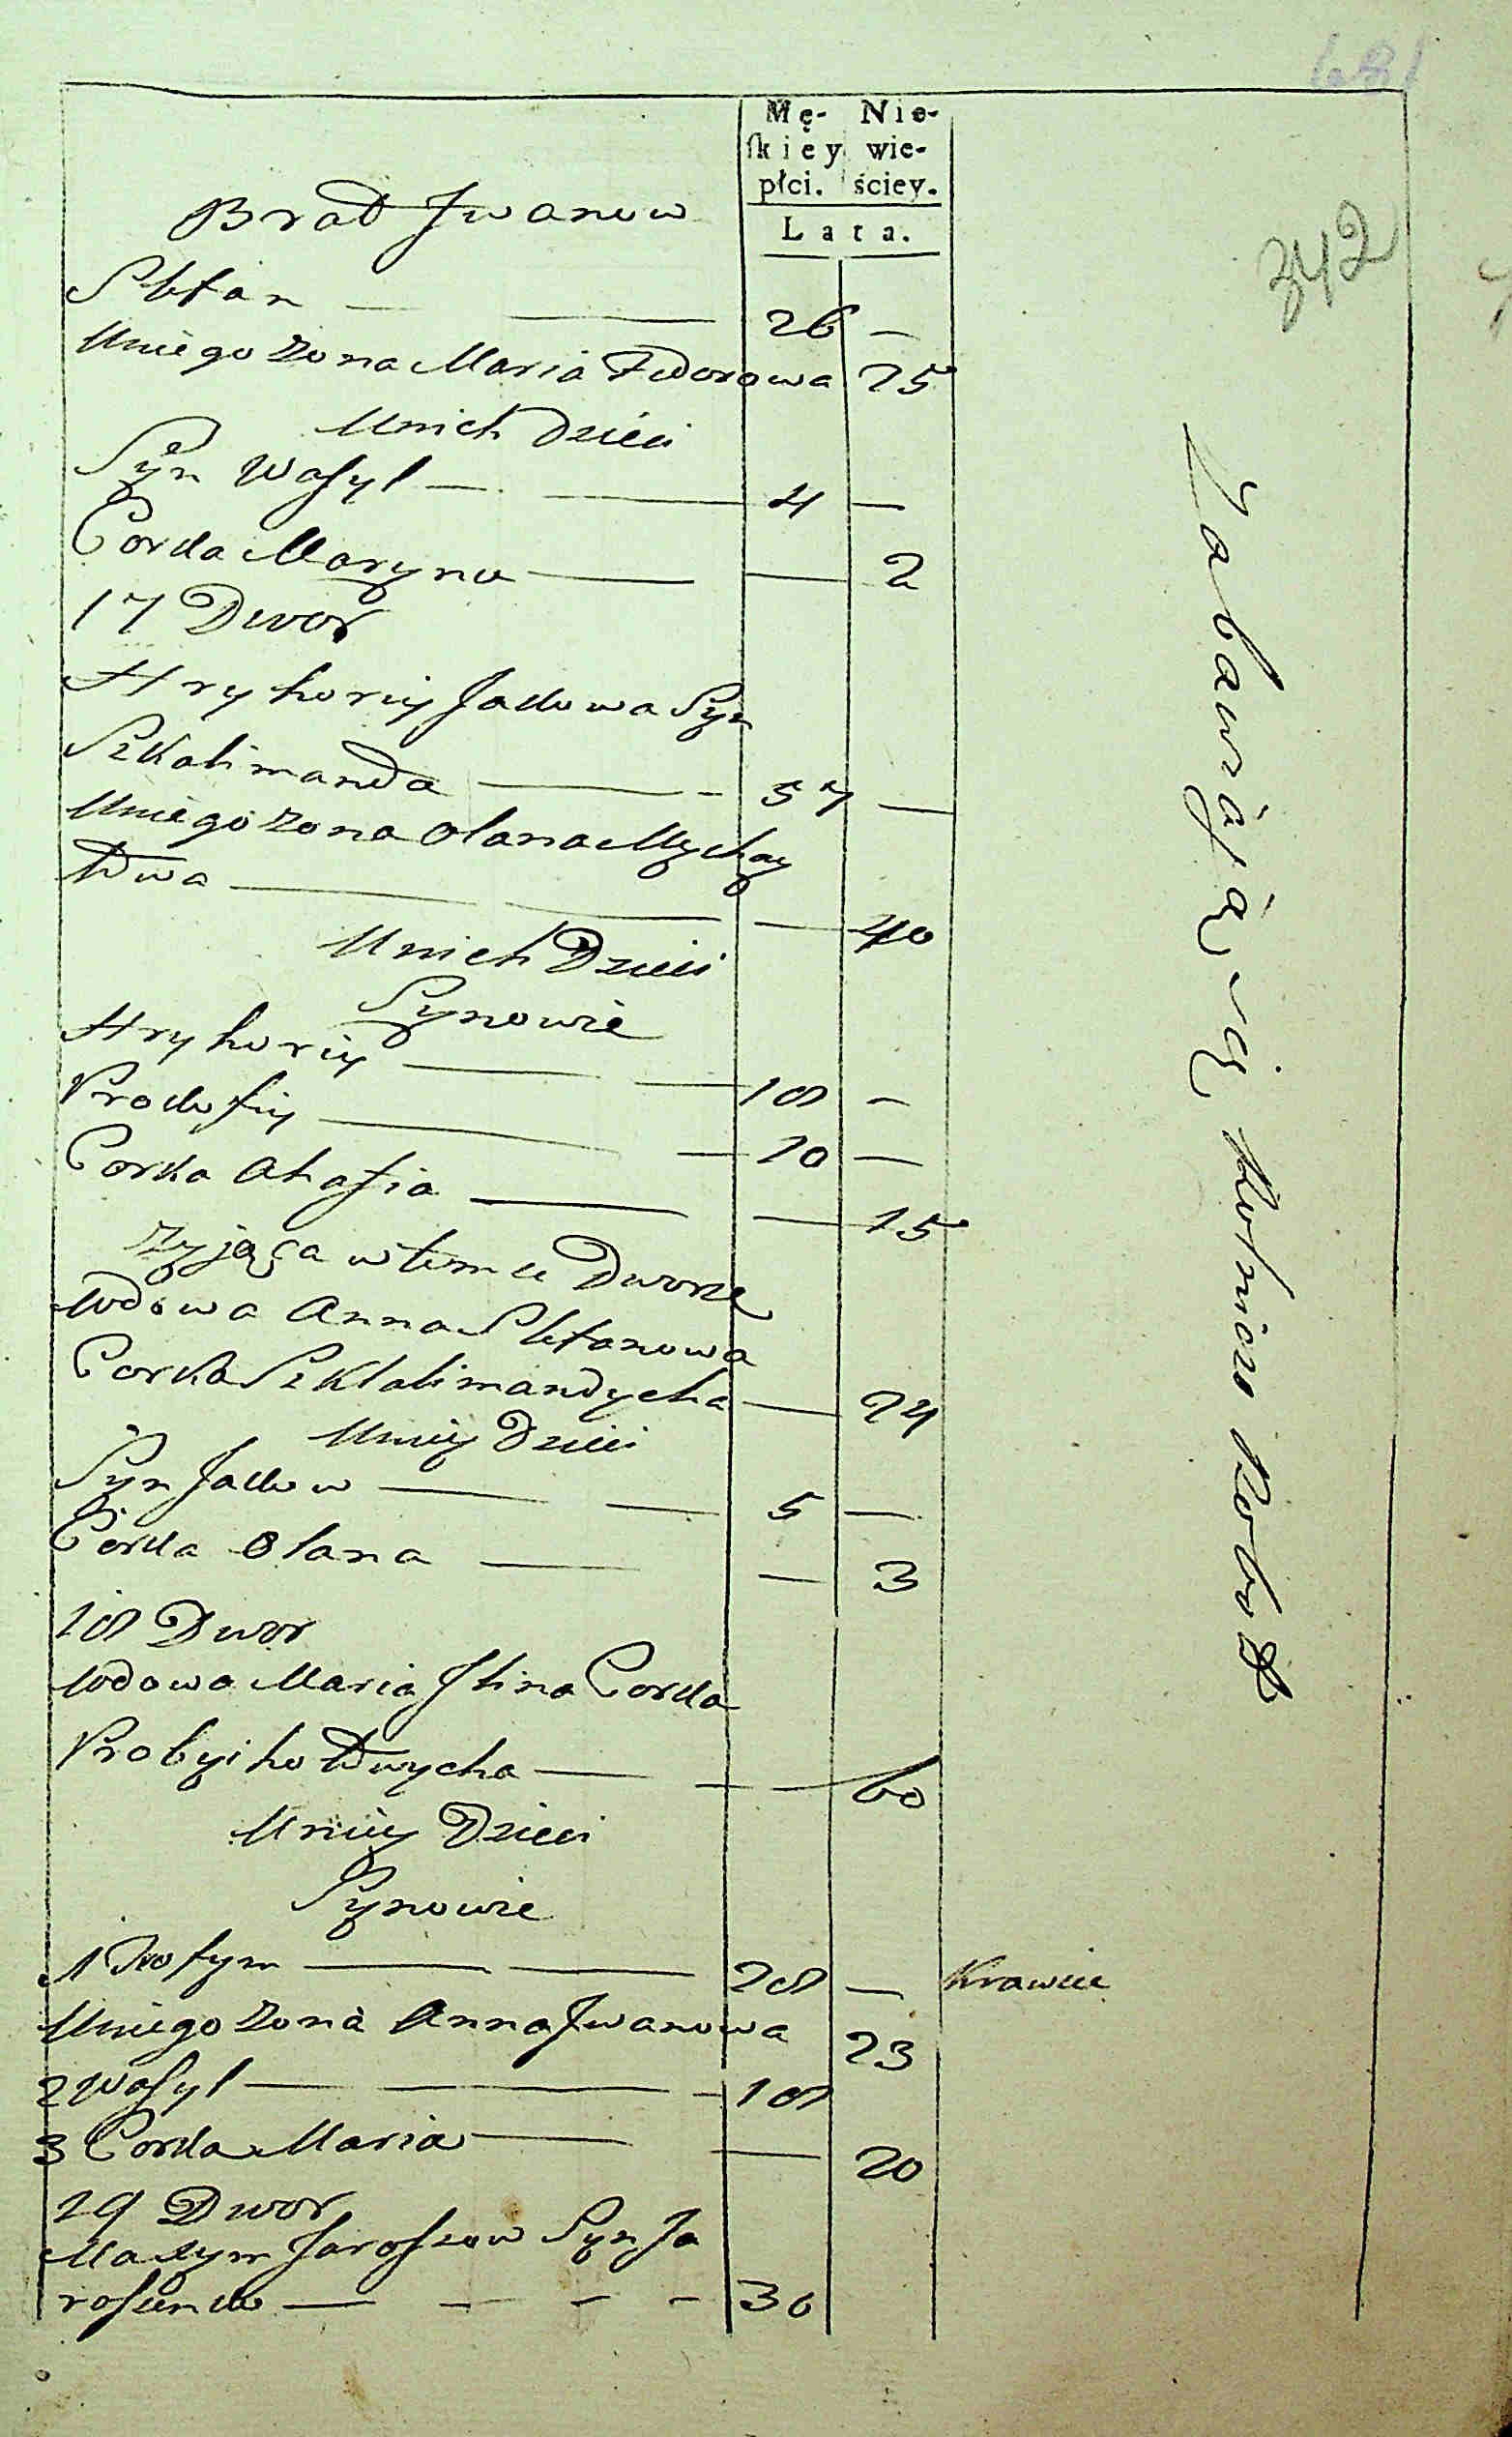 Mę- Nie-
ſkiey wie-
płci. ściey.
Lata.
342
Brat Jwanow
Stefan — — 26 —
Uniego Zona Maria Fedorowa 25
Unich Dzieci
Syn Wasyl — — 4 —
Corka Maryna — — 2
17 Dwor
Hryhoriy Jakowa Syn
Szkolimanda — - 57 —
Uniego Zona Olana Mychay
łowa — — — 40
Unich Dzieci
Synowie
Hryhoriy — — 18 —
Prokofiy — — 10 —
Corka Ahafia — — 15
Zyjąca w tem ze Dworze
Wdowa Anna Stefanowa
Corka Szklalimandycha — 24
Uniey Dzieci
Syn Jakow — — 5 —
Corka Olana — — 3
18 Dwor
Wdowa Maria Jlina Corka
Probyihołowycha — — 60
Uniey Dzieci
Synowie
1 Trofym — — 28 — Krawiec
Uniego Zona Anna Jwanowa 23
2 Wasyl — — - 18
3 Corka Maria — — 20
19 Dwor
Maxym Jaroszow Syn Ja
roszenko — — - - 30
Zabawiaią się Rolniczo Robotą